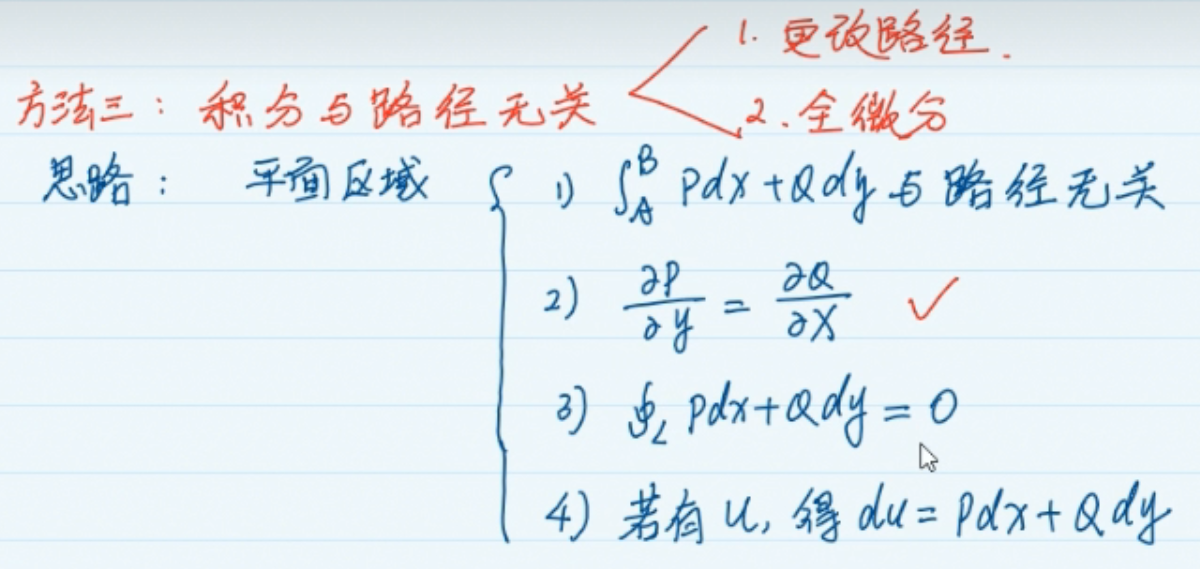 1. 更改路径.
方法三: 积分与路径无关
2. 全微分
思路: 平面区域 { 1) ∫_A^B Pdx+Qdy 与路径无关
2) ∂P/∂y = ∂Q/∂x ✓
3) ∮_L Pdx+Qdy = 0
4) 若有 u, 得 du = Pdx+Qdy